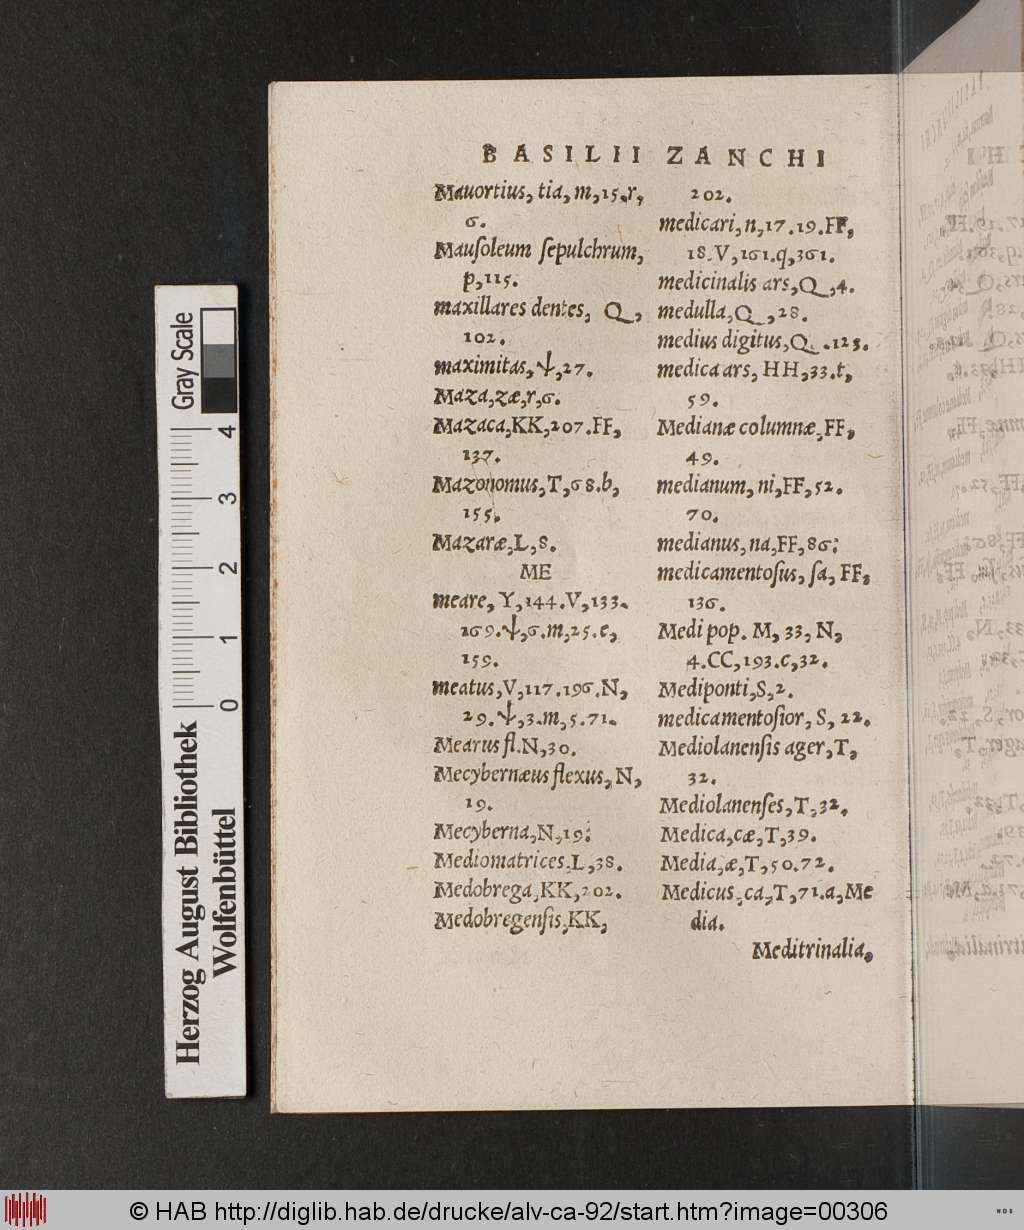 BASILII ZANCHI
Mauortius, tia, m, 15. r,
6.
Mauſoleum ſepulchrum,
p, 115.
maxillares dentes, Q,
102.
maximitas, Ψ, 27.
Maza, zæ, r, 6.
Mazaca, KK, 207. FF,
137.
Mazonomus, T, 68. b,
155.
Mazaræ, L, 8.
ME
meare, Y, 144. V, 133.
169. Ψ, 6. m, 25. e,
159.
meatus, V, 117. 196. N,
29. Ψ, 3. m, 5. 71.
Mearus fl. N, 30.
Mecybernæus flexus, N,
19.
Mecyberna, N, 19:
Mediomatrices, L, 38.
Medobrega, KK, 202.
Medobregenſis, KK,
202.
medicari, n, 17. 19. FF,
18. V, 161. q, 361.
medicinalis ars, Q, 4.
medulla, Q, 28.
medius digitus, Q. 125.
medica ars, HH, 33. t,
59.
Medianæ columnæ, FF,
49.
medianum, ni, FF, 52.
70.
medianus, na, FF, 86:
medicamentoſus, ſa, FF,
136.
Medi pop. M, 33, N,
4. CC, 193. c, 32.
Mediponti, S, 2.
medicamentoſior, S, 22.
Mediolanenſis ager, T,
32.
Mediolanenſes, T, 32.
Medica, cæ, T, 39.
Media, æ, T, 50. 72.
Medicus, ca, T, 71. a, Me
dia.
Meditrinalia,
Gray Scale
4
3
2
1
0
Herzog August Bibliothek
Wolfenbüttel
© HAB http://diglib.hab.de/drucke/alv-ca-92/start.htm?image=00306